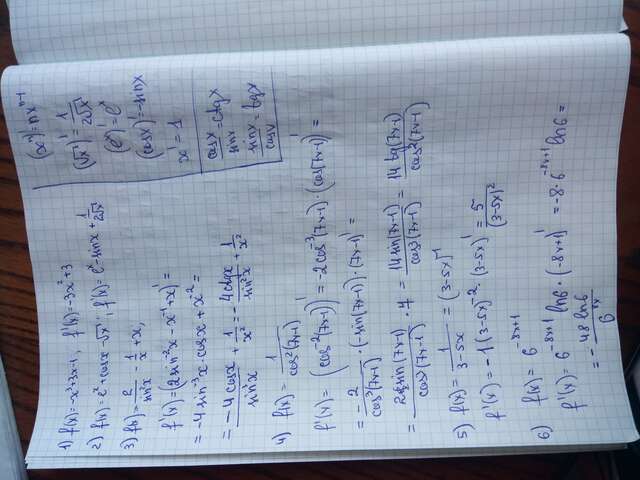 1) f(x)=-x³+3x-1, f'(x)=-3x²+3
2) f(x)=eˣ+cosx-√x; f'(x)=eˣ-sinx+1/(2√x)
3) f(x)=2/sin²x-1/x+x,
f'(x)=(2sin⁻²x-x⁻¹+x)'=
=-4sin⁻³x·cosx+x⁻²=
=-4cosx/sin³x+1/x²=-4ctgx/sin²x+1/x²
4) f(x)=1/cos²(7x-1)
f'(x)=(cos⁻²(7x-1))'=-2cos⁻³(7x-1)·(cos(7x-1))'=
=-2/cos³(7x-1)·(-sin(7x-1))·(7x-1)'=
=2sin(7x-1)/cos³(7x-1)·7=14sin(7x-1)/cos³(7x-1)=14tg(7x-1)/cos²(7x-1)
5) f(x)=1/(3-5x)=(3-5x)⁻¹
f'(x)=-1(3-5x)⁻²·(3-5x)'=5/(3-5x)²
6) f(x)=6⁻⁸ˣ⁺¹
f'(x)=6⁻⁸ˣ⁺¹ln6·(-8x+1)'=-8·6⁻⁸ˣ⁺¹ln6=
=-48ln6/6⁸ˣ
(xⁿ)'=nxⁿ⁻¹
(√x)'=1/(2√x)
(eˣ)'=eˣ
(cosx)'=-sinx
x'=1
cosx/sinx=ctgx
sinx/cosx=tgx